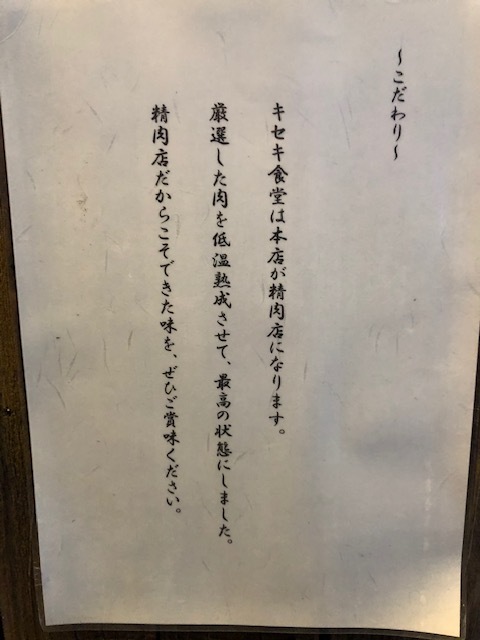 ～こだわり～
キセキ食堂は本店が精肉店になります。
厳選した肉を低温熟成させて、最高の状態にしました。
精肉店だからこそできた味を、ぜひご賞味ください。